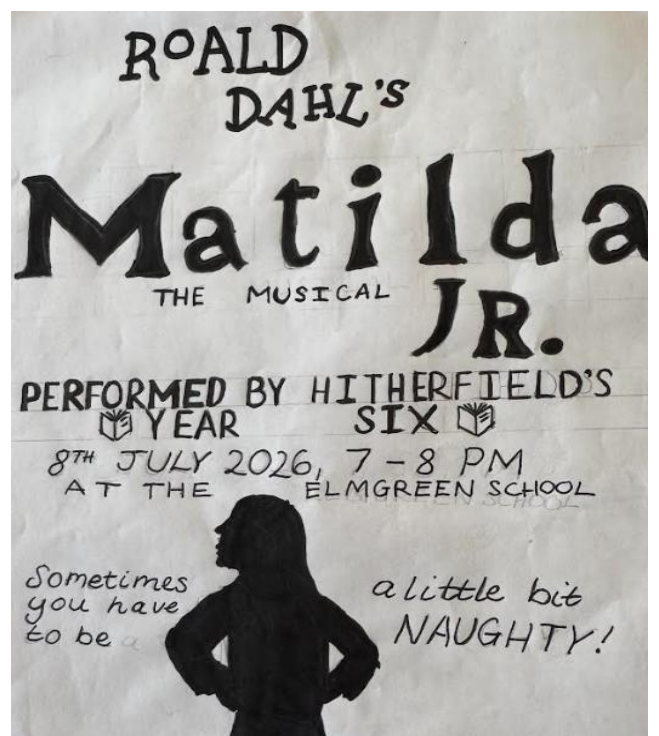 ROALD
DAHL'S
Matilda
THE MUSICAL
JR.
PERFORMED BY HITHERFIELD'S
YEAR SIX
8TH JULY 2026, 7-8 PM
AT THE ELMGREEN SCHOOL
Sometimes
you have
to be a
a little bit
NAUGHTY!